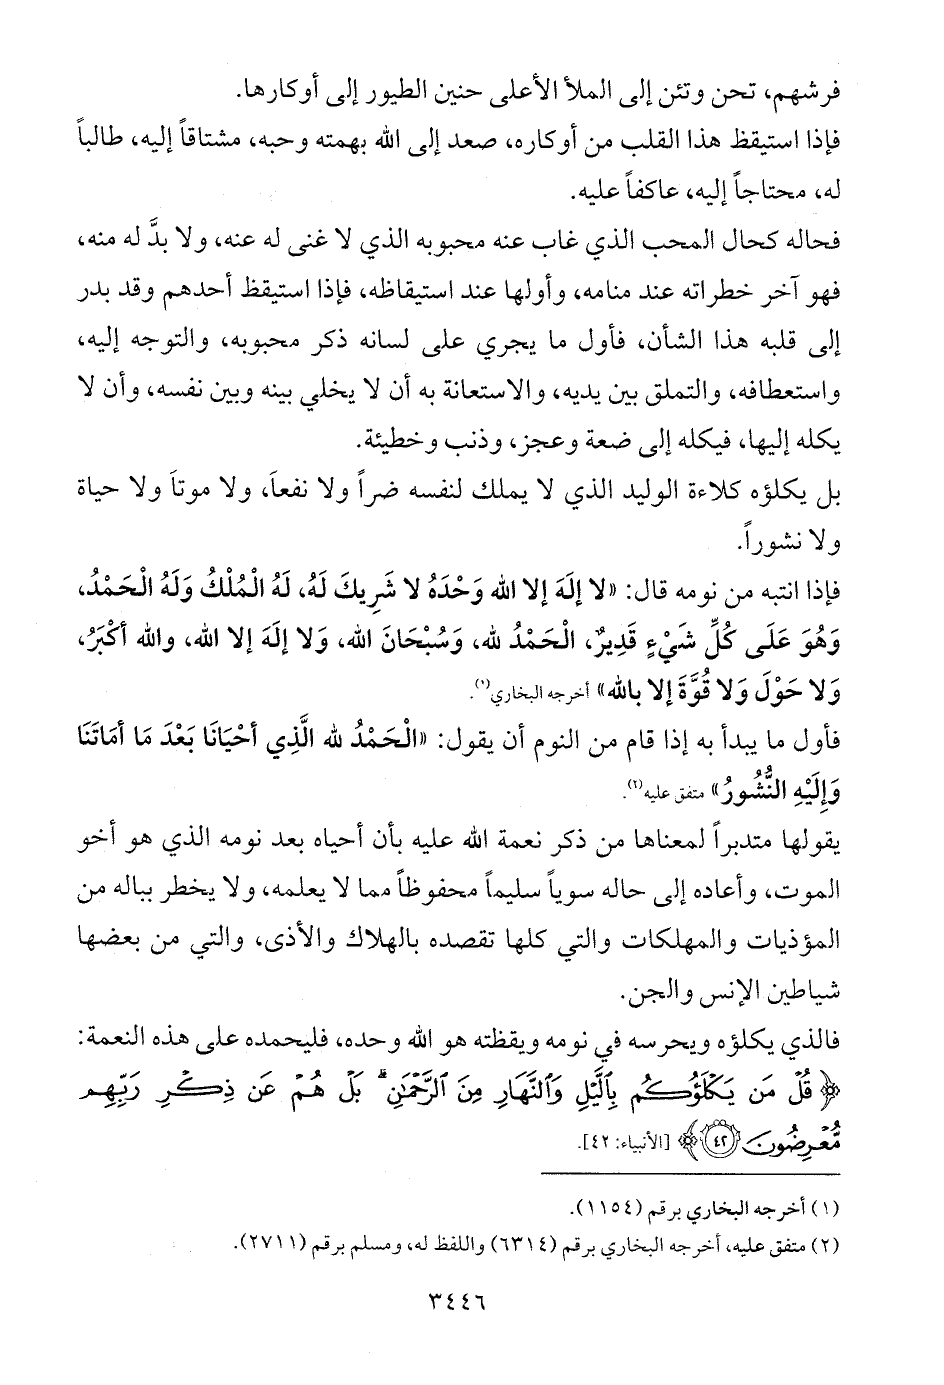 فرشهم، تحن وتئن إلى الملأ الأعلى حنين الطيور إلى أوكارها.
فإذا استيقظ هذا القلب من أوكاره، صعد إلى الله بهمته وحبه، مشتاقاً إليه، طالباً
له، محتاجاً إليه، عاكفاً عليه.
فحاله كحال المحب الذي غاب عنه محبوبه الذي لا غنى له عنه، ولا بدَّ له منه،
فهو آخر خطراته عند منامه، وأولها عند استيقاظه، فإذا استيقظ أحدهم وقد بدر
إلى قلبه هذا الشأن، فأول ما يجري على لسانه ذكر محبوبه، والتوجه إليه،
واستعطافه، والتملق بين يديه، والاستعانة به أن لا يخلي بينه وبين نفسه، وأن لا
يكله إليها، فيكله إلى ضعة وعجز، وذنب وخطيئة.
بل يكلؤه كلاءة الوليد الذي لا يملك لنفسه ضراً ولا نفعاً، ولا موتاً ولا حياة
ولا نشوراً.
فإذا انتبه من نومه قال: «لا إلَهَ إلا الله وَحْدَهُ لا شَرِيكَ لَهُ، لَهُ الْمُلْكُ وَلَهُ الْحَمْدُ،
وَهُوَ عَلَى كُلِّ شَيْءٍ قَدِيرٌ، الْحَمْدُ لله، وَسُبْحَانَ الله، وَلا إلَهَ إلا الله، والله أكْبَرُ،
وَلا حَوْلَ وَلا قُوَّةَ إلا بالله» أخرجه البخاري(١).
فأول ما يبدأ به إذا قام من النوم أن يقول: «الْحَمْدُ لله الَّذِي أحْيَانَا بَعْدَ مَا أمَاتَنَا
وَإِلَيْهِ النُّشُورُ» متفق عليه(٢).
يقولها متدبراً لمعناها من ذكر نعمة الله عليه بأن أحياه بعد نومه الذي هو أخو
الموت، وأعاده إلى حاله سوياً سليماً محفوظاً مما لا يعلمه، ولا يخطر بباله من
المؤذيات والمهلكات والتي كلها تقصده بالهلاك والأذى، والتي من بعضها
شياطين الإنس والجن.
فالذي يكلؤه ويحرسه في نومه ويقظته هو الله وحده، فليحمده على هذه النعمة:
﴿قُلْ مَن يَكْلَؤُكُم بِٱلَّيْلِ وَٱلنَّهَارِ مِنَ ٱلرَّحْمَٰنِ ۗ بَلْ هُمْ عَن ذِكْرِ رَبِّهِم
مُّعْرِضُونَ ﴿٤٢﴾﴾ [الأنبياء: ٤٢].
(١) أخرجه البخاري برقم (١١٥٤).
(٢) متفق عليه، أخرجه البخاري برقم (٦٣١٤) واللفظ له، ومسلم برقم (٢٧١١).
٣٤٤٦